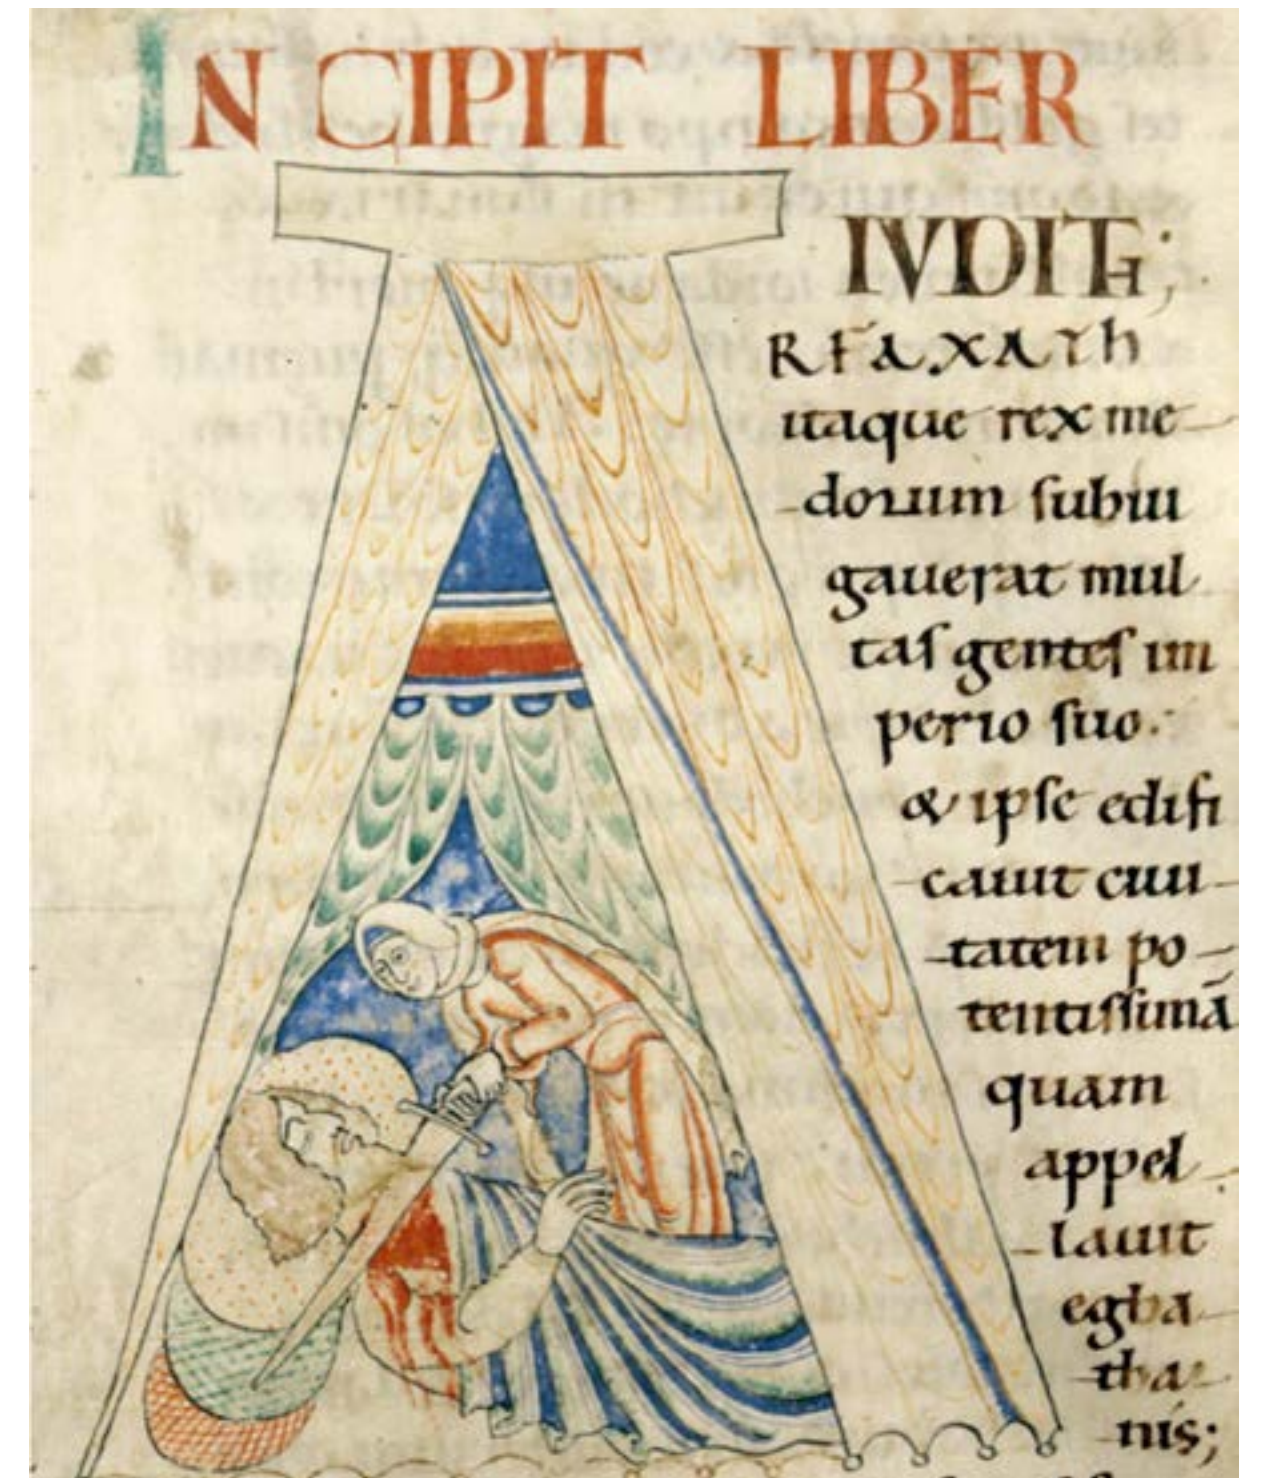 INCIPIT LIBER
IVDITH;
ARFAXATH
itaque rex me
dorum ſubiu
gauerat mul
taſ genteſ im
perio ſuo.
& ipſe edifi
cauit ciui
tatem po
tentiſſimā
quam
appel
lauit
egba
tha
nis;